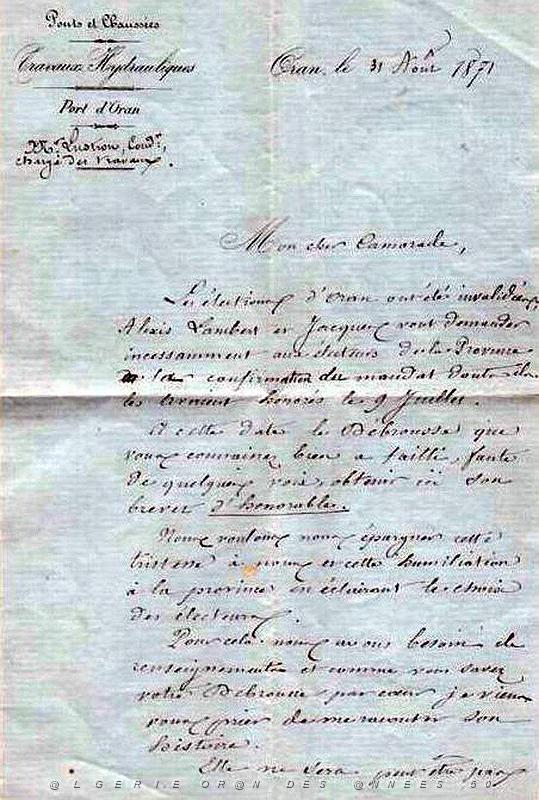 Ponts et Chaussées
Travaux Hydrauliques
Port d'Oran
Mr Ludron, Condr
chargé des travaux.
Oran, le 31 1871
Mon cher Camarade,
Les élections d'Oran ont été invalidées,
Alexis Lambert et Jacques vont demander
incessamment aux électeurs de la Province
la confirmation du mandat dont ils
les avaient honorés le 9 Juillet.
A cette date le Débrousse que
vous connaissez bien a failli, faute
de quelques voix, obtenir ici son
brevet d'honorable.
Nous voulons nous épargner cette
tristesse à nous et cette humiliation
à la province en éclairant le choix
des électeurs.
Pour cela nous avons besoin de
renseignements et comme vous savez
votre Débrousse par cœur je viens
vous prier de me raconter son
histoire.
Elle ne sera peut être pas
@LGERIE OR@N DES @NNEES 50